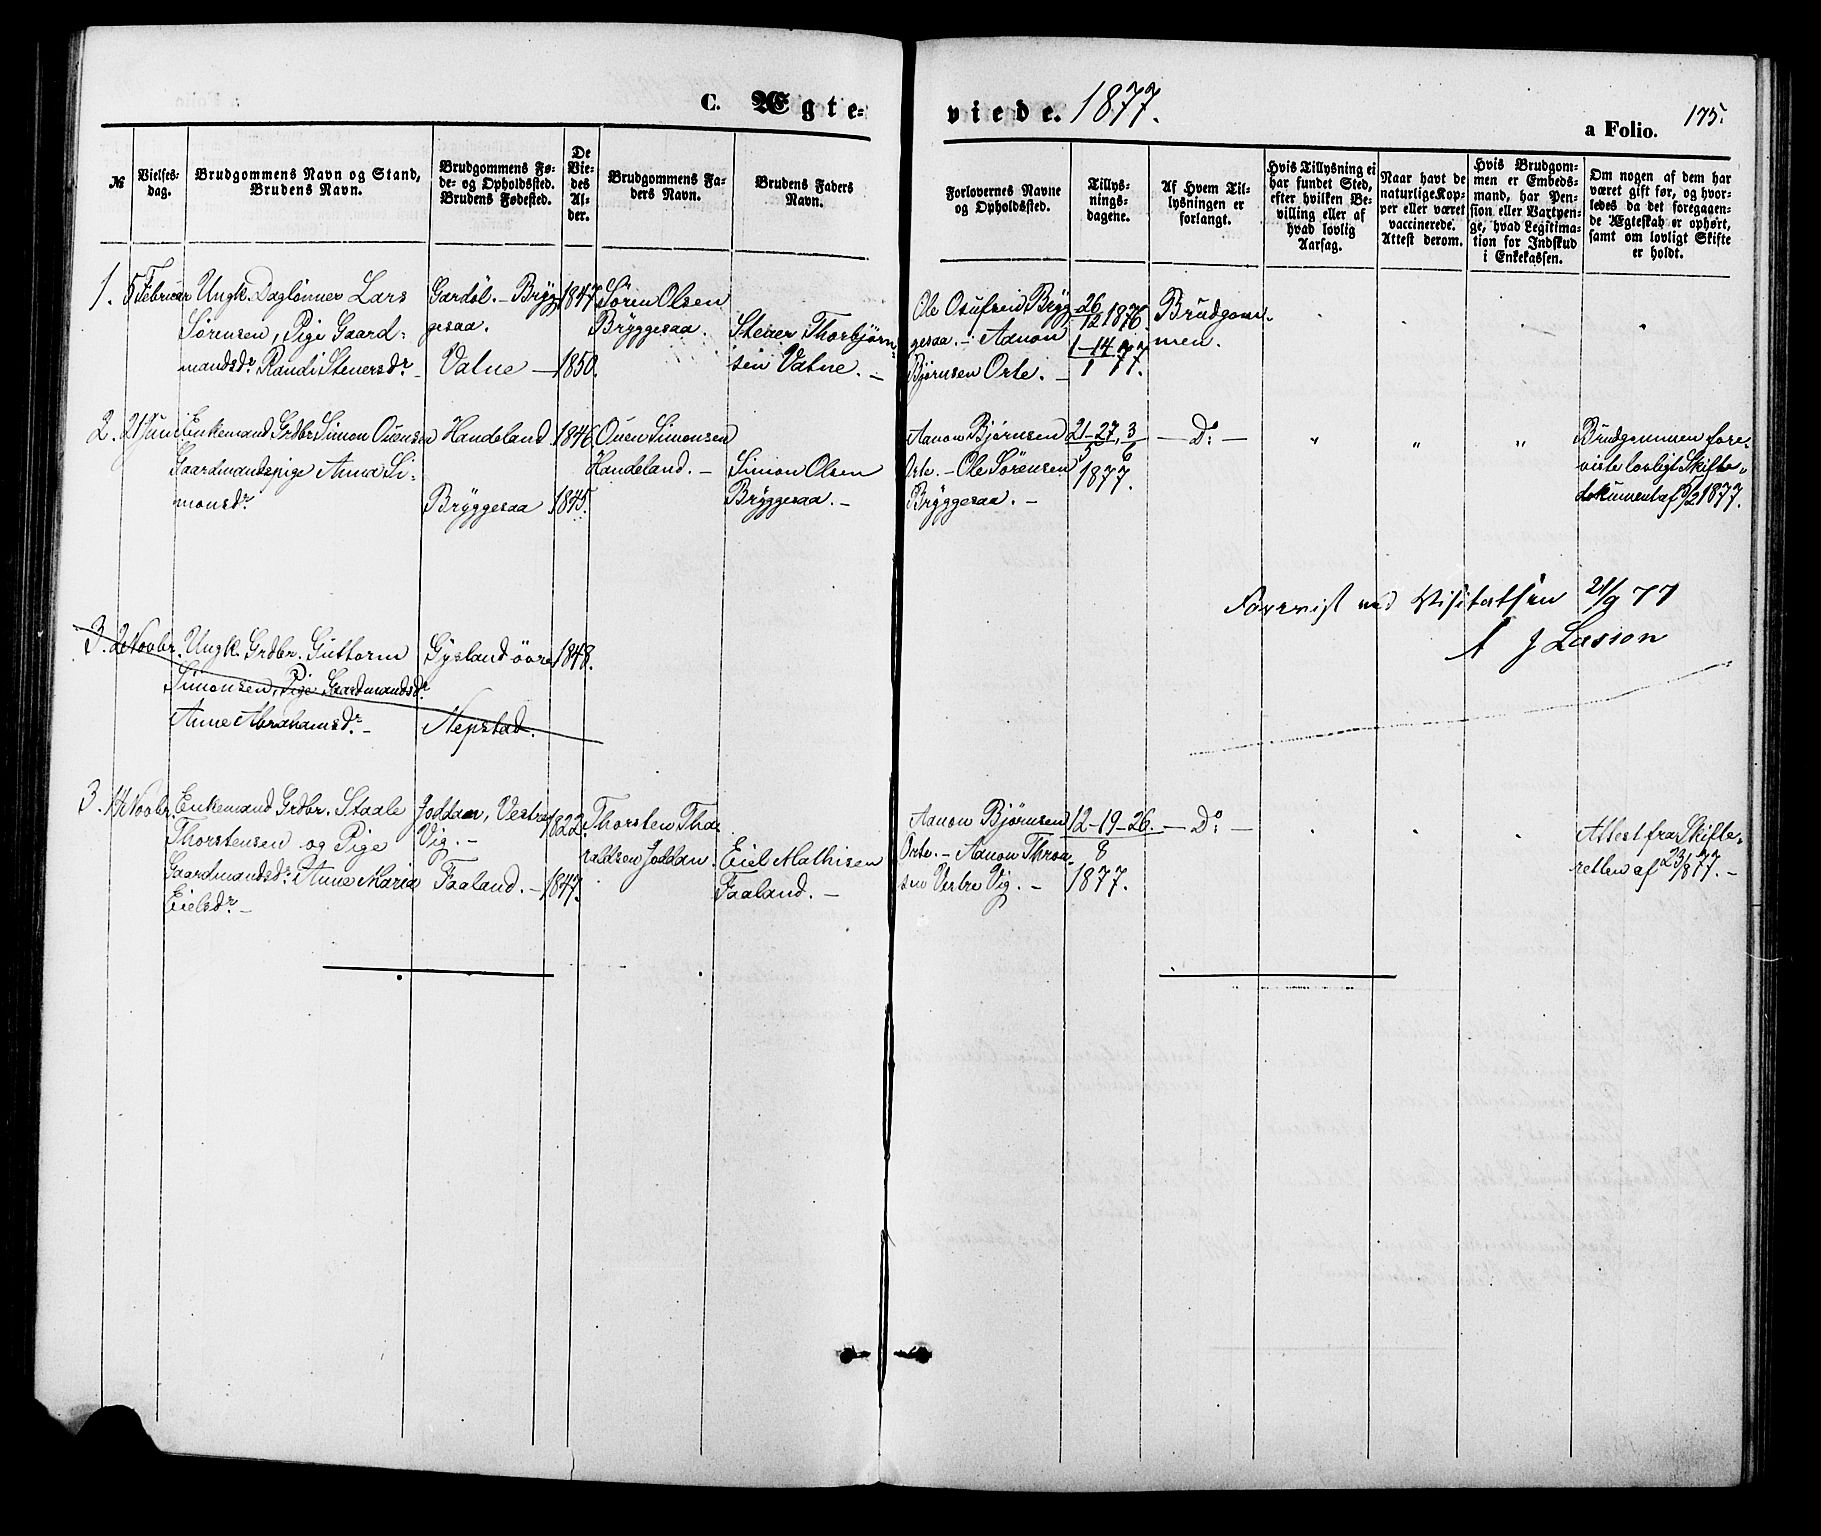 C. Ægte-
viede. 1877.
a Folio. 175.
№
Vielses-
dag.
Brudgommens Navn og Stand,
Brudens Navn.
Brudgommens Fø-
de- og Opholdssted.
Brudens Fødested.
De
Vie-
des
Al-
der.
Brudgommens Fa-
ders Navn.
Brudens Faders
Navn.
Forlovernes Navne
og Opholdssted.
Tillys-
nings-
dagene.
Af Hvem Til-
lysningen er
forlangt.
Hvis Tillysning ei
har fundet Sted,
efter hvilken Be-
villing eller af
hvad lovlig
Aarsag.
Naar havt de
naturlige Kop-
per eller været
vaccinerede.
Attest derom.
Hvis Brudgom-
men er Embeds-
mand, har Pen-
sion eller Vartpen-
ge, hvad Legitima-
tion for Indskud
i Enkekassen.
Om nogen af dem har
været gift før, og hvor-
ledes da det foregagen-
de Ægteskab er ophørt,
samt om lovligt Skifte
er holdt.
1. 5 Februar
Ungk. Daglønner Lars
Sørensen, Pige Gaard-
mandsdr. Randi Stenersdr. -
Gardøl. - Bryg-
gesaa.
Vatne -
1847
1850.
Søren Olsen
Bryggesaa.
Stener Thorbjørn-
sen Vatne. -
Ole Osufsen Bryg-
gesaa. - Aanon
Bjørnsen Orte. -
26/12 1876.
1-14/1 77.
Brudgom-
men.
2. 21 Juni
Enkemand Grdbr. Simon Ouensen
Gaardmandspige Anna Si-
monsdr.
Handeland
Bryggesaa
1846.
1845.
Ouen Simonsen
Handeland. -
Simon Olsen
Bryggesaa. -
Aanon Bjørnsen
Orte. - Ole Sørensen
Bryggesaa. -
21-27/5, 3/6
1877.
- Do: -
" " "
Brudgommen fore-
viste lovligt Skifte-
dokument af /2 1877.
Forevist ved Visitatsen 21/9 77
J Lasson
3. 2 Novbr.
Ungk. Grdbr. Guttorm
Simonsen, Pige Gaardmandsdr.
Anne Abrahamsdr. -
Gysland øvre
Nepstad.
1848.
3. 14 Novbr.
Enkemand Grdbr. Staale
Thorstensen og Pige
Gaardmandsdr. Anne Maria
Eielsdr. -
Joddan, Vestre
Vig. -
Faaland. -
1822.
1847.
Thorsten Tha-
raldsen Joddan.
Eiel Mathisen
Faaland. -
Aanon Bjørnsen
Orte. - Aanon Thron-
sen Vestre Vig. -
12-19-26.
8
1877.
- Do: -
Attest fra Skifte-
retten af 23/8 77. -